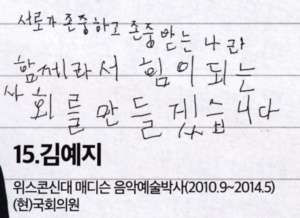 서로가 존중하고 존중 받는 나라
함께라서 힘이 되는
사회를 만들겠습니다
15.김예지
위스콘신대 매디슨 음악예술박사(2010.9~2014.5)
(현)국회의원